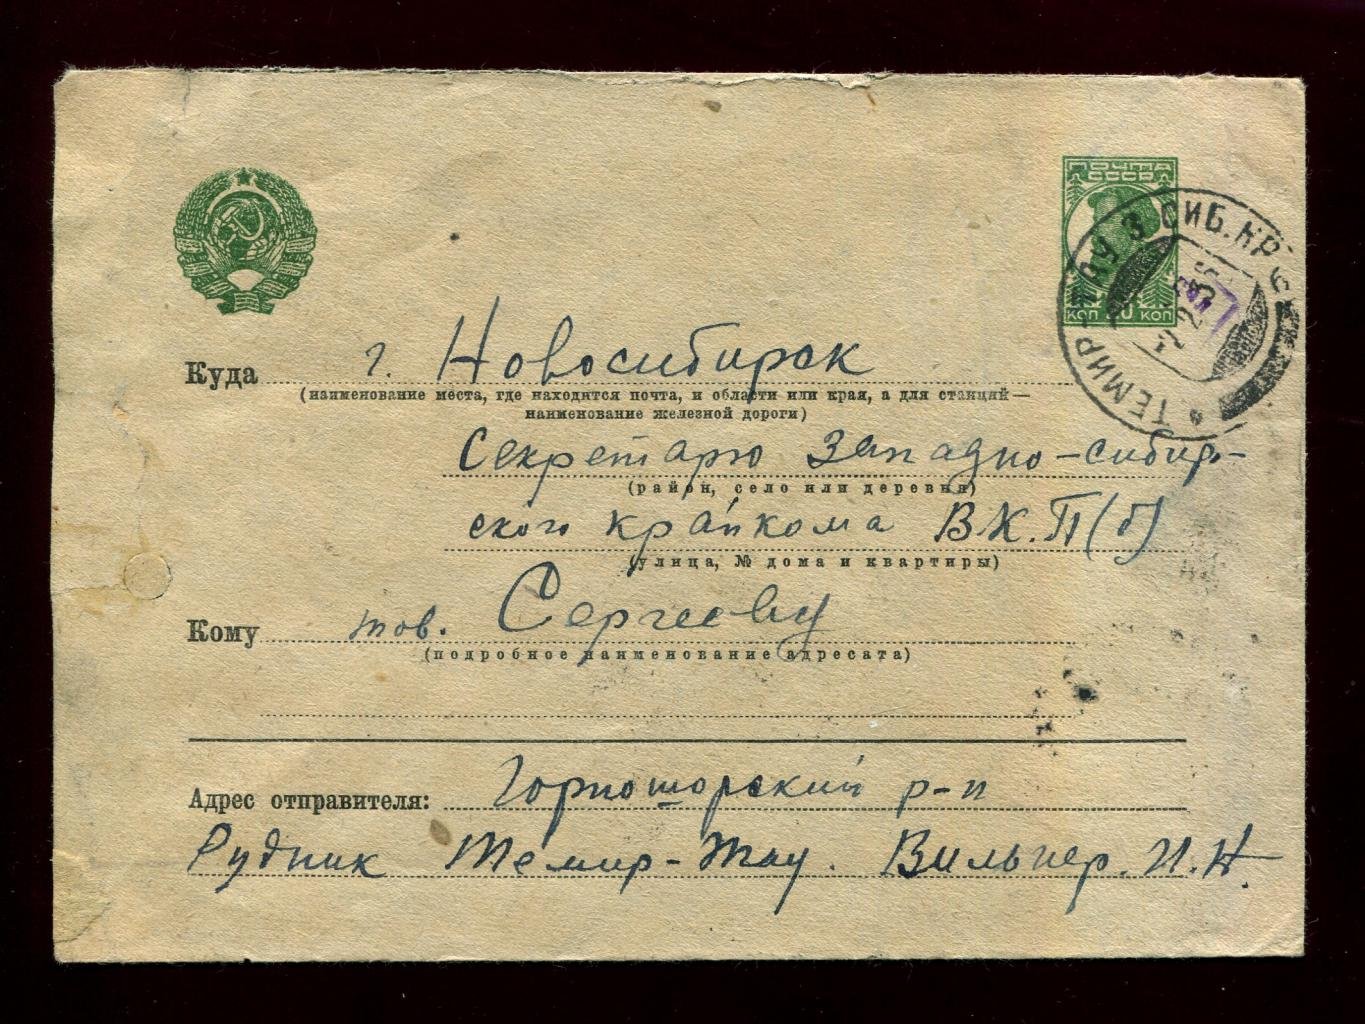 ПОЧТА
СССР
КОП 20 КОП
ТЕМИР-ТАУ З. СИБ. КР.
Куда г. Новосибирск
(наименование места, где находится почта, и области или края, а для станций—
наименование железной дороги)
Секретарю Западно-сибир-
(район, село или деревня)
ского крайкома ВК.П(б)
(улица, № дома и квартиры)
Кому тов. Сергееву
(подробное наименование адресата)
Адрес отправителя: Горношорский р-н
Рудник Темир-Тау. Вильнер. И. Н.